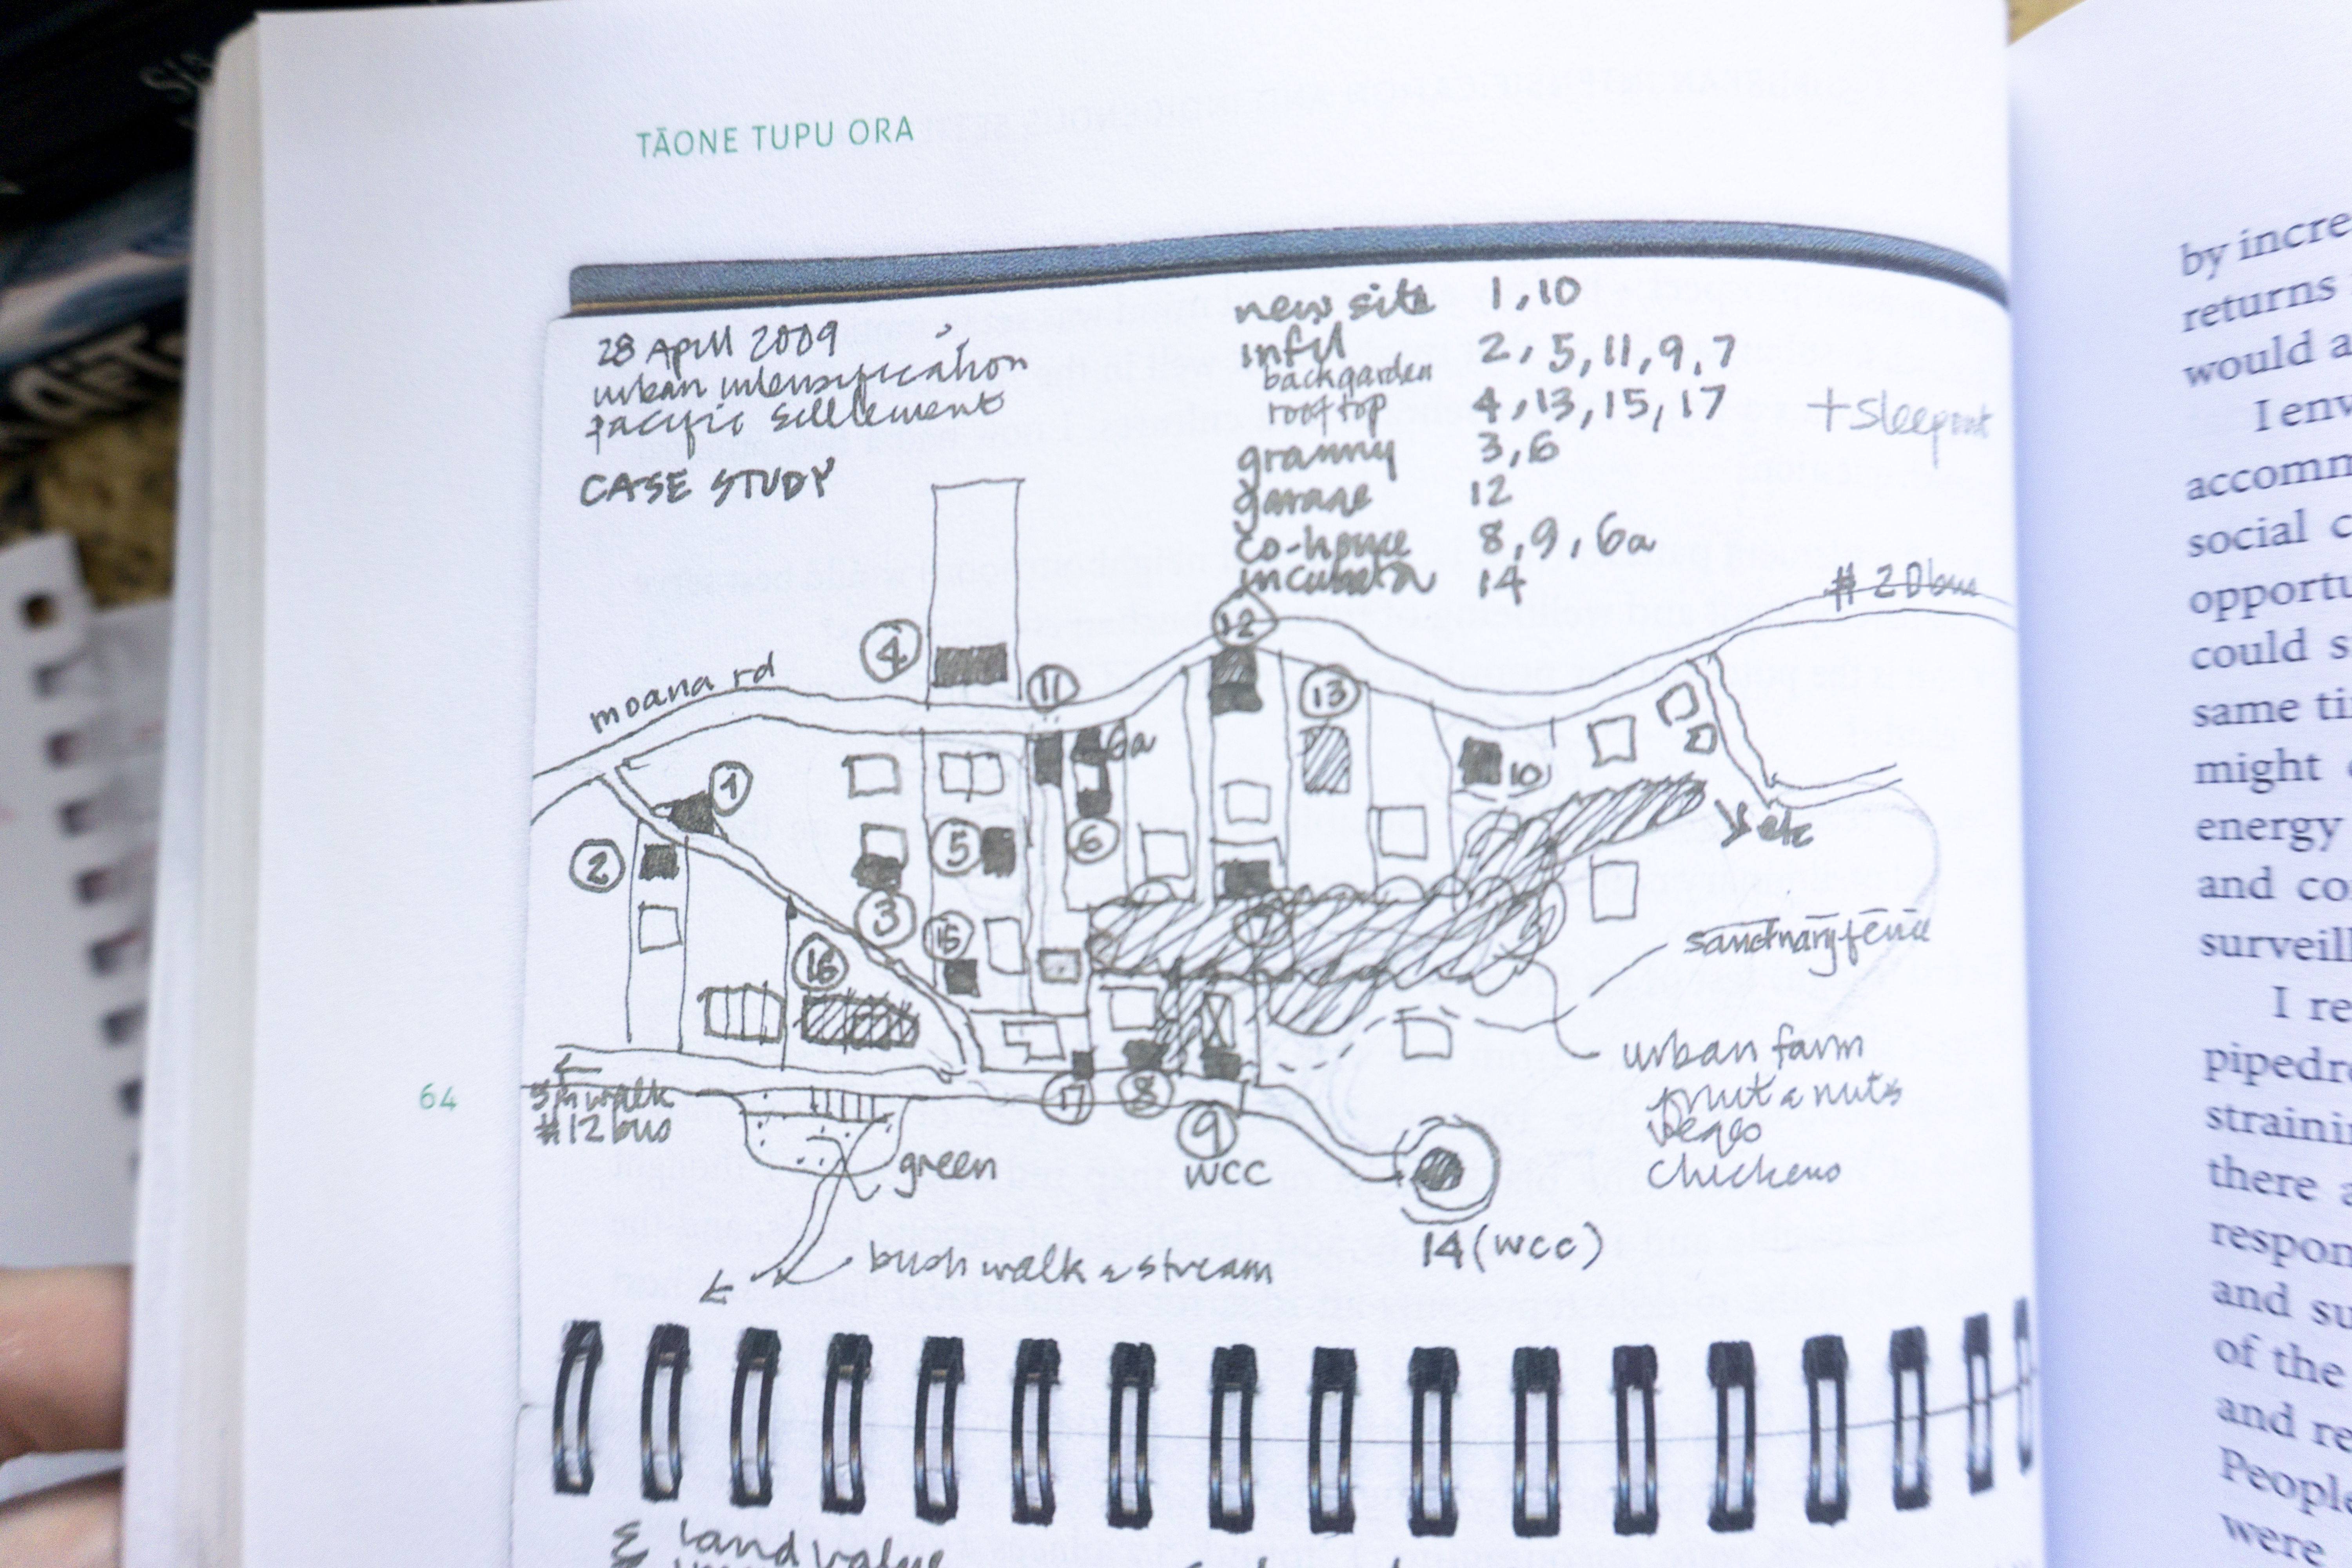 TĀONE TUPU ORA
28 April 2009
urban intensification
pacific settlement
CASE STUDY
new site 1, 10
infil 2, 5, 11, 9, 7
backgarden
rooftop 4, 13, 15, 17
+ sleepout
granny 3, 6
garage 12
co-house 8, 9, 6a
incubator 14
# 20 bus
moana rd
4
12
11
13
6a
1
10
2
5
6
etc
3
15
7
sanctuary fence
16
urban farm
fruit & nuts
veges
chickens
64
5m walk
#12 bus
17
8
9
wcc
green
14 (wcc)
bush walk & stream
Σ land value
by incre
returns
would a
I env
accomm
social c
opportu
could s
same ti
might
energy
and co
surveill
I re
pipedre
straini
there a
respon
and su
of the
and re
People
were